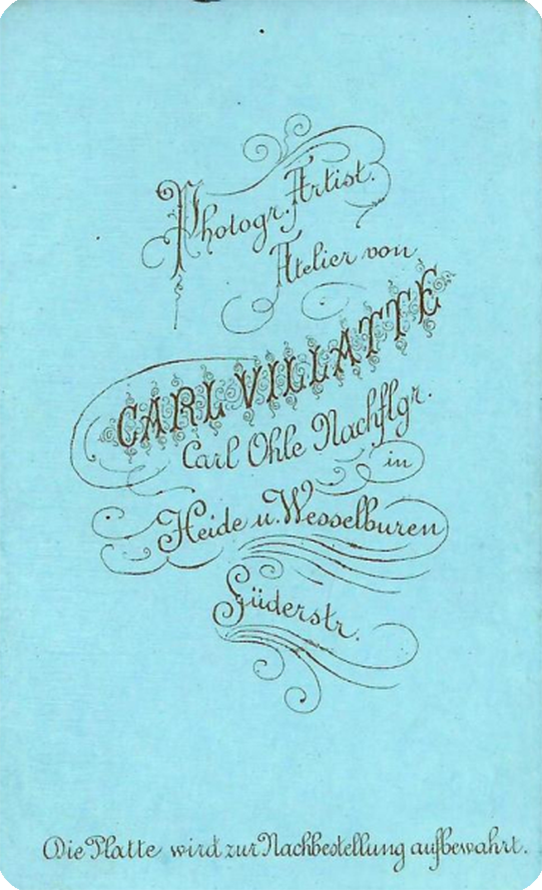 Photogr. Artist.
Atelier von
CARL VILLATTE
Carl Ohle Nachflgr.
in
Heide u. Wesselburen
Süderstr.
Die Platte wird zur Nachbestellung aufbewahrt.